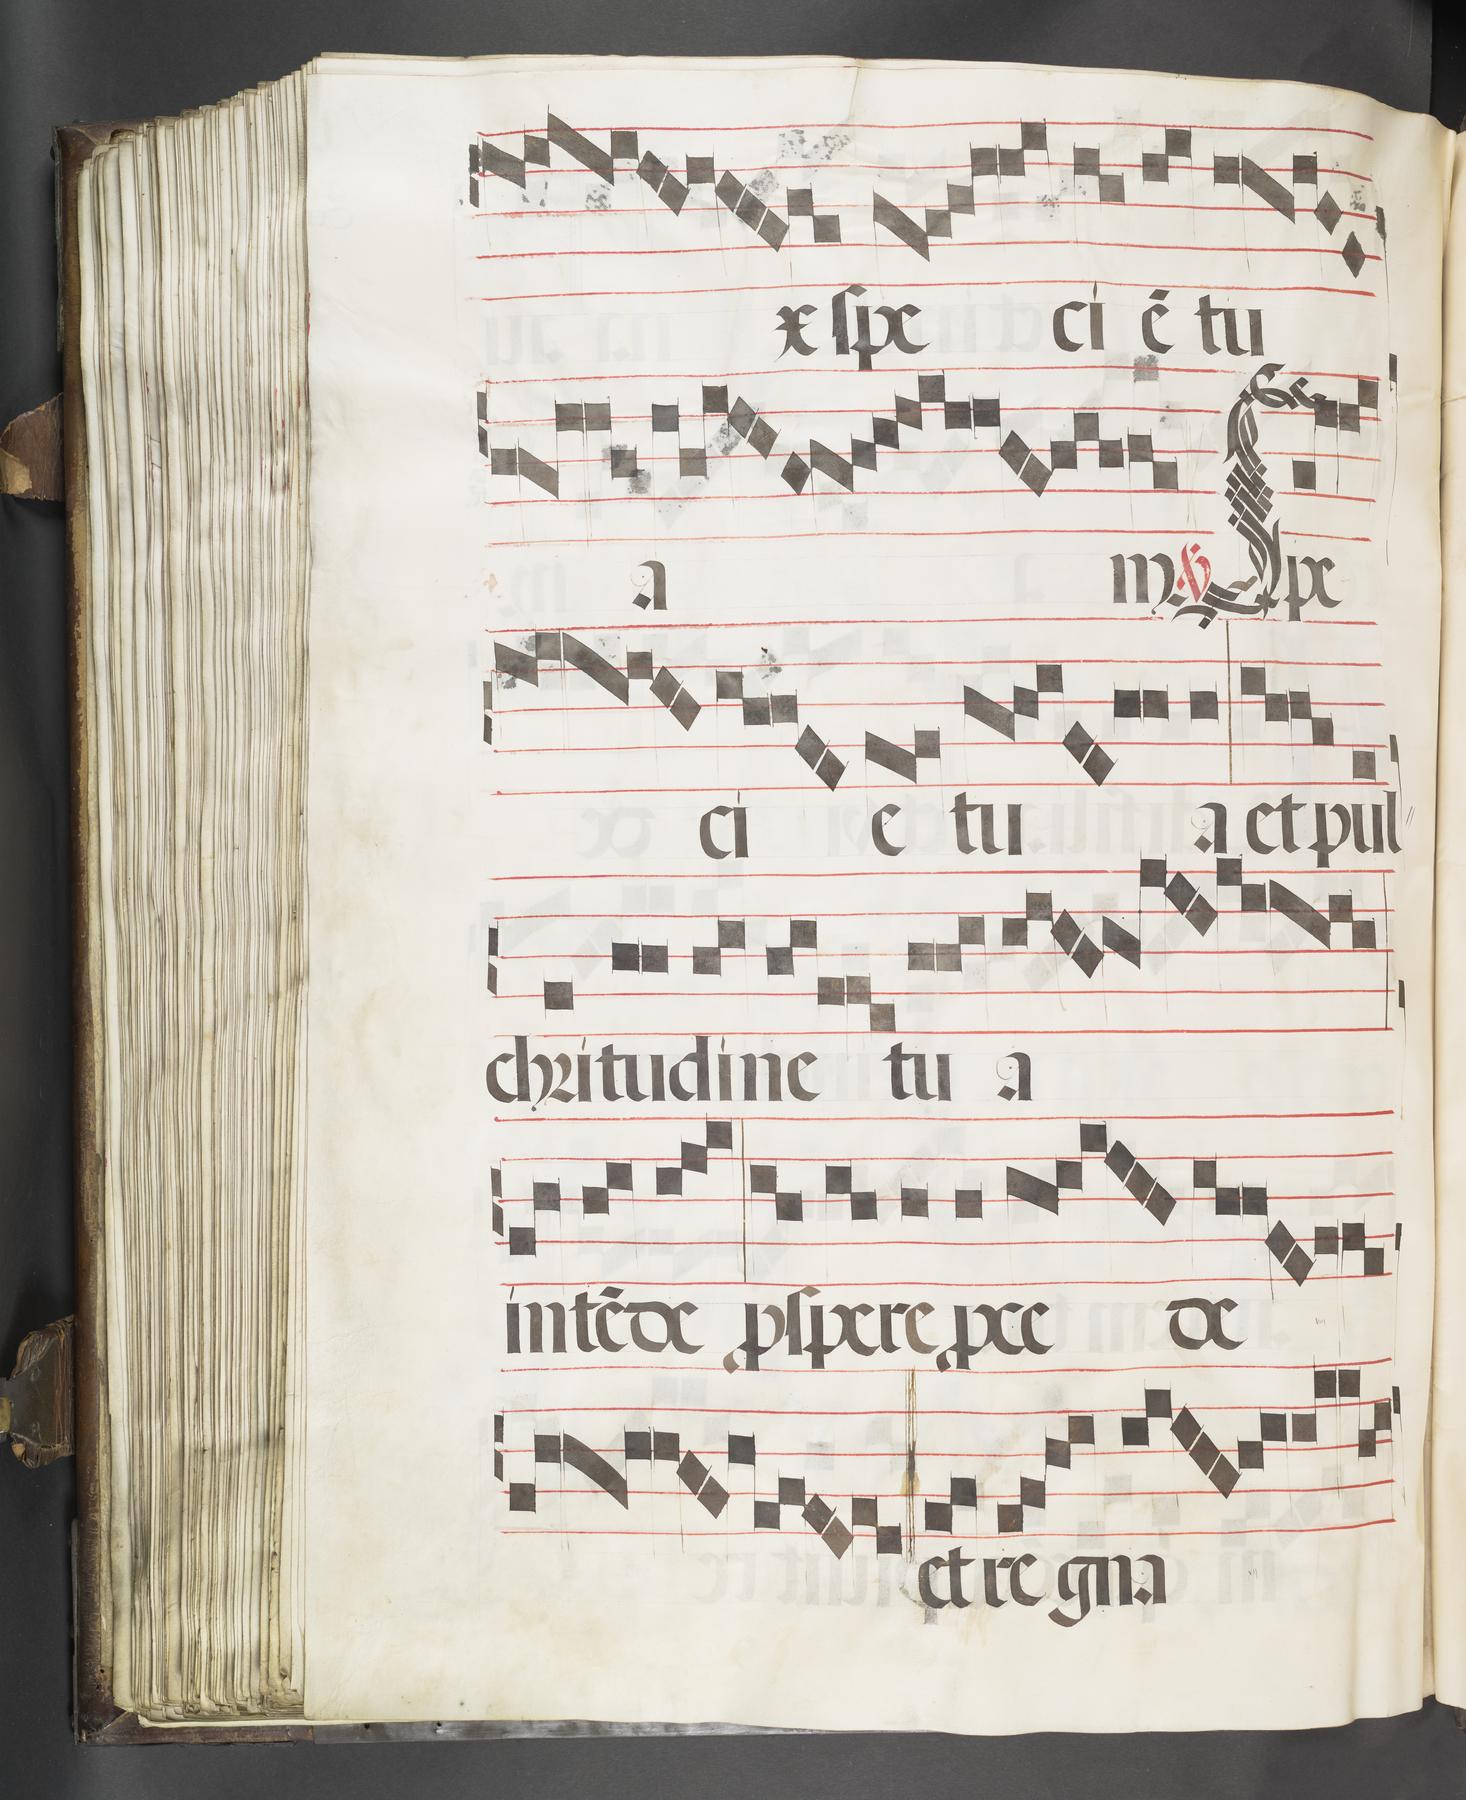 x spe ci ē tu
a m ℣ Spe
ci e tu a et pul
chritudine tu a
intēde ꝓspere ꝓce de
et re gna